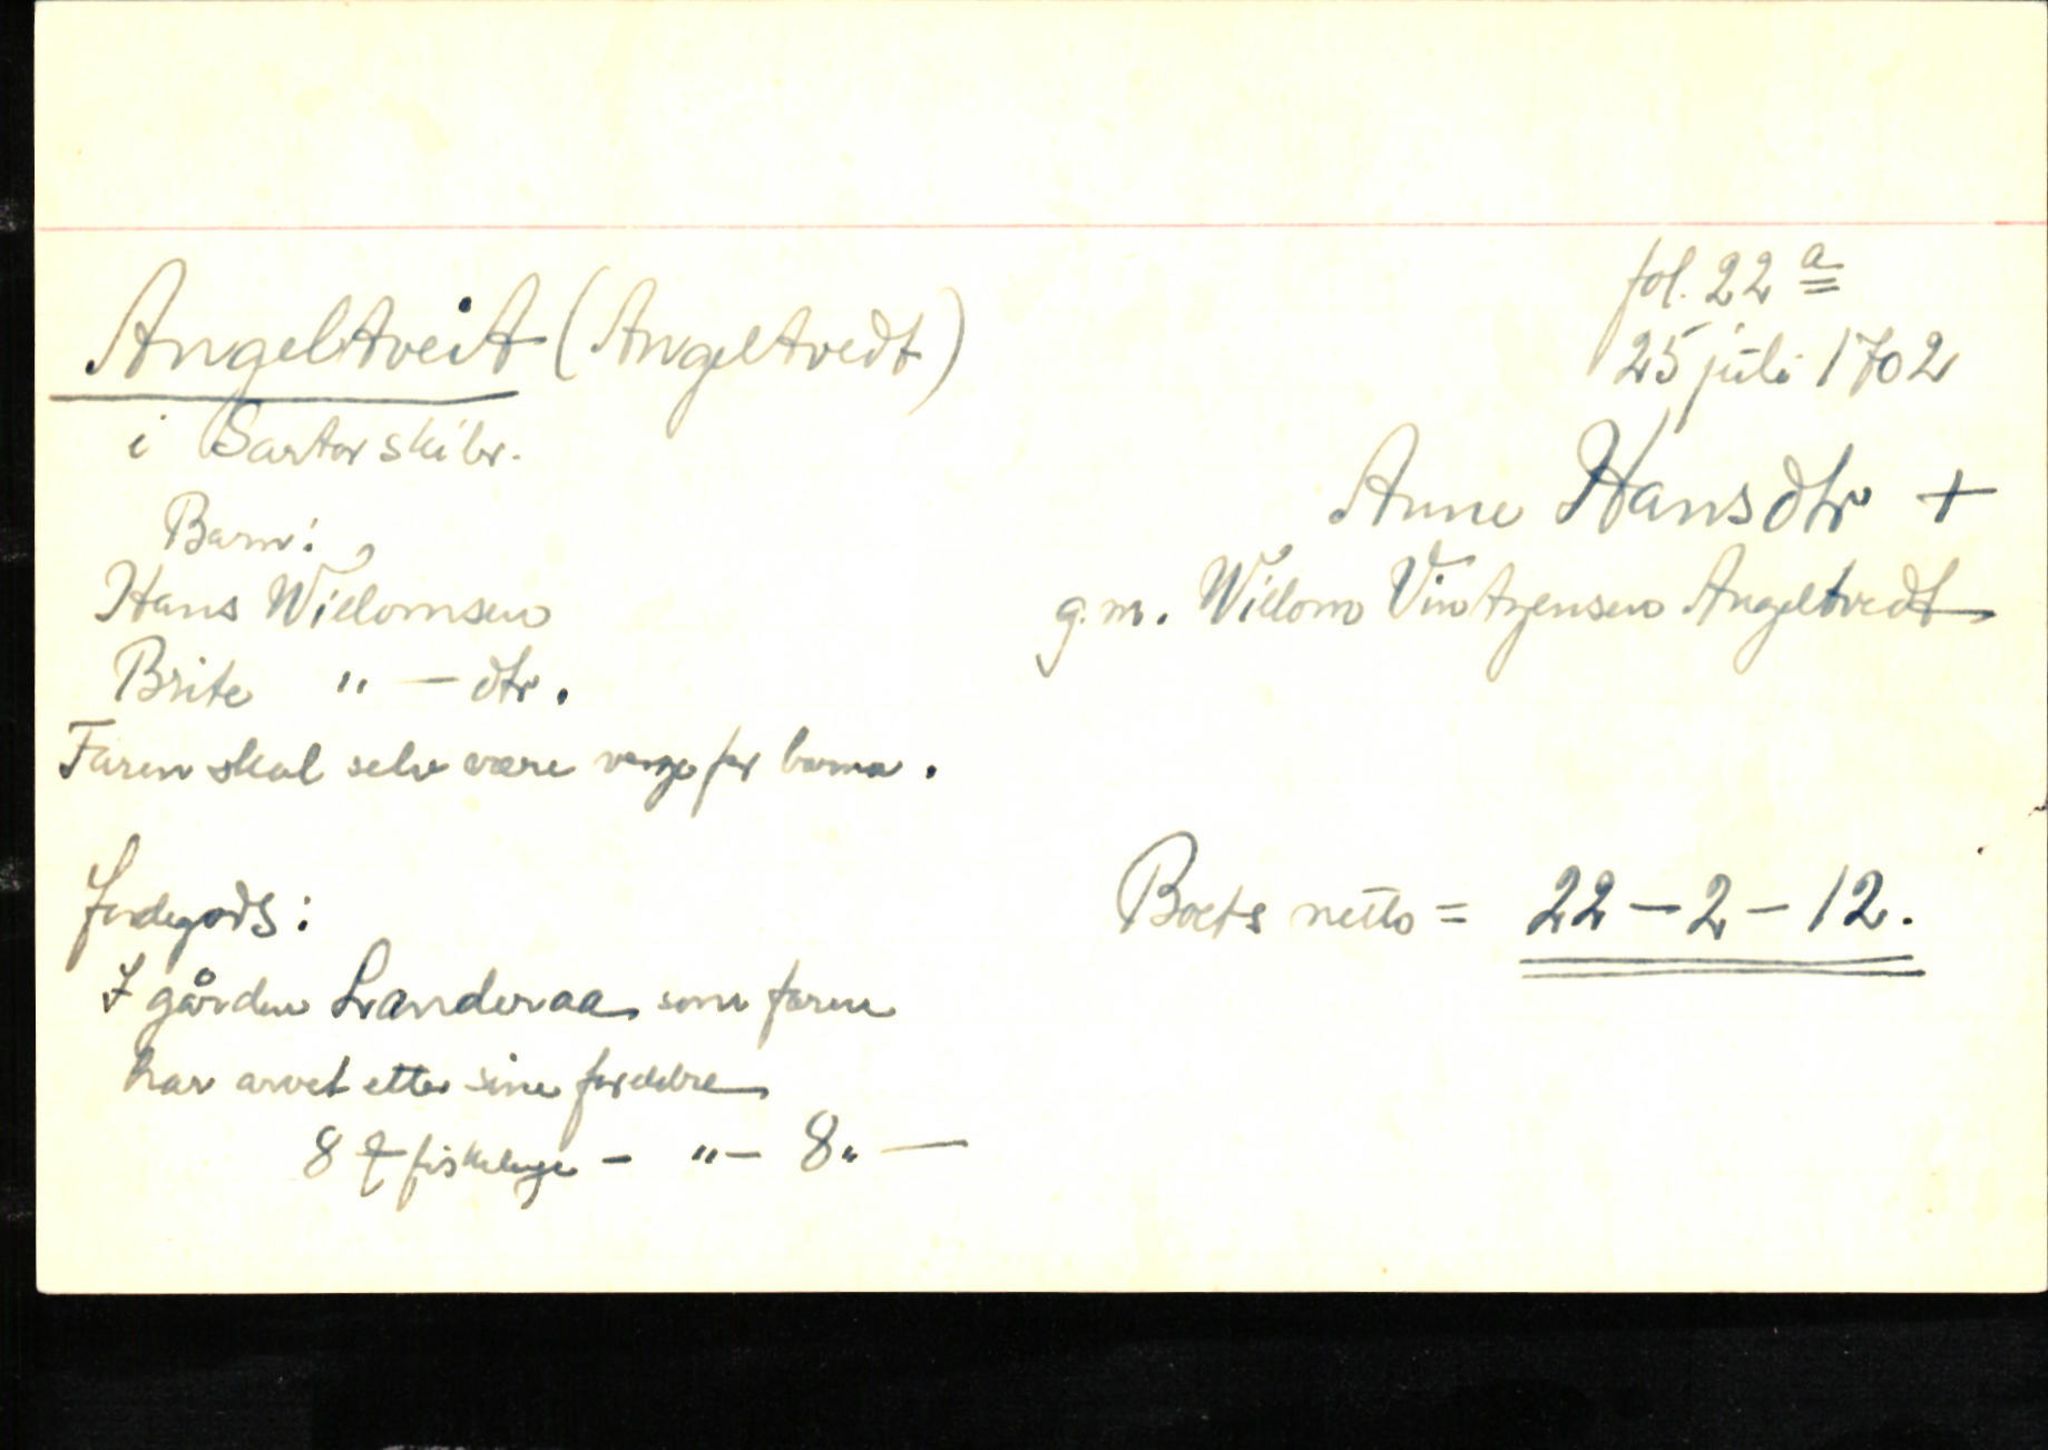 fol. 22 a
Angeltveit (Angeltvedt)
25 juli 1702
i Sartor skibr.
Anne Hansdtr +
Barn:
Hans Willomsen
g.m. Willom Vintzensen Angeltvedt
Brite " — dtr.
Faren skal selv være verge for barna.
Jordegods:
Boets netto = 22 — 2 — 12.
I gården Landeraa som faren
har arvet etter sine foreldre
8 fiskeleye — " — 8 " —